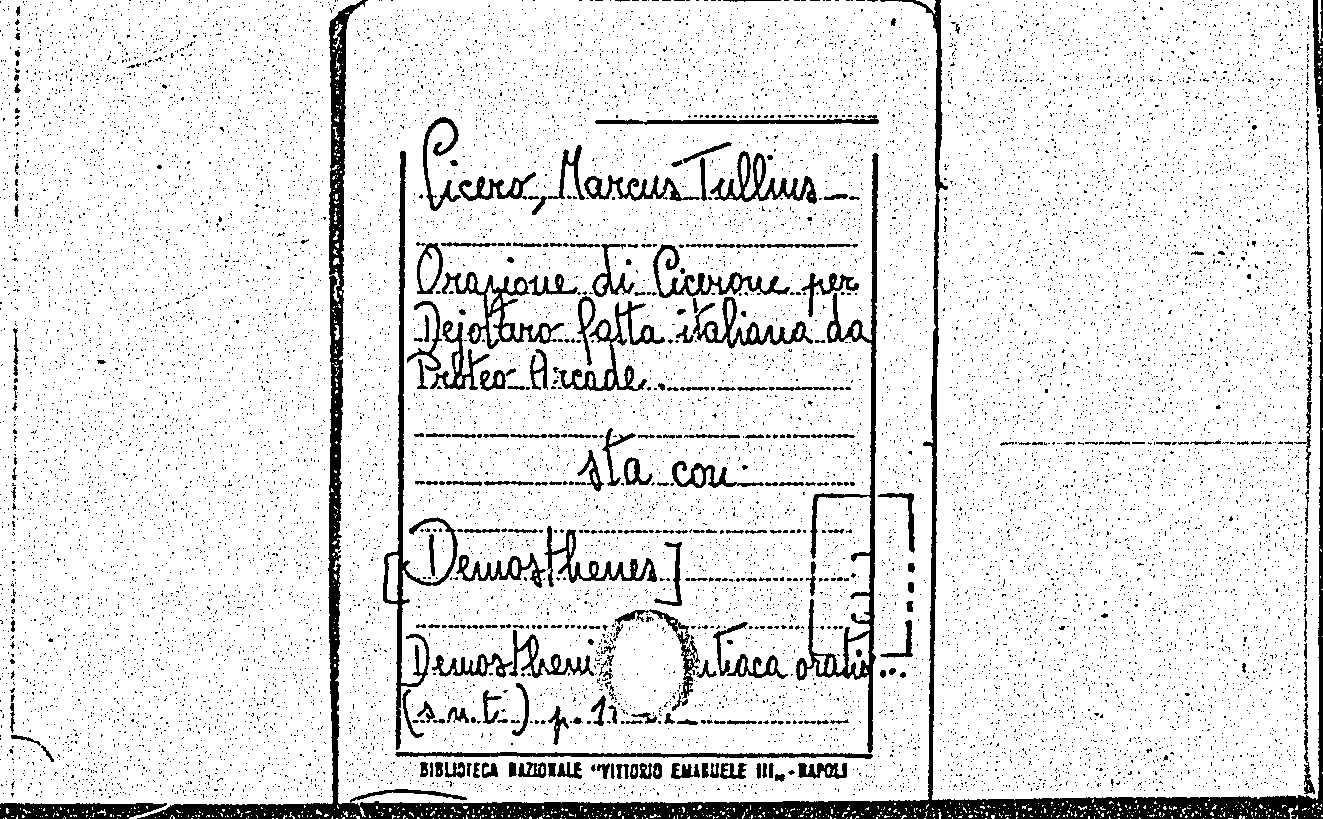 Cicero, Marcus Tullius
Orazione di Cicerone per
Dejoltaro fatta italiana da
Proteo Arcade.
sta con:
[Demosthenes]
Demostheni utiaca oratio...
(s.n.t.) p.
BIBLIOTECA NAZIONALE "VITTORIO EMANUELE III„ - NAPOLI